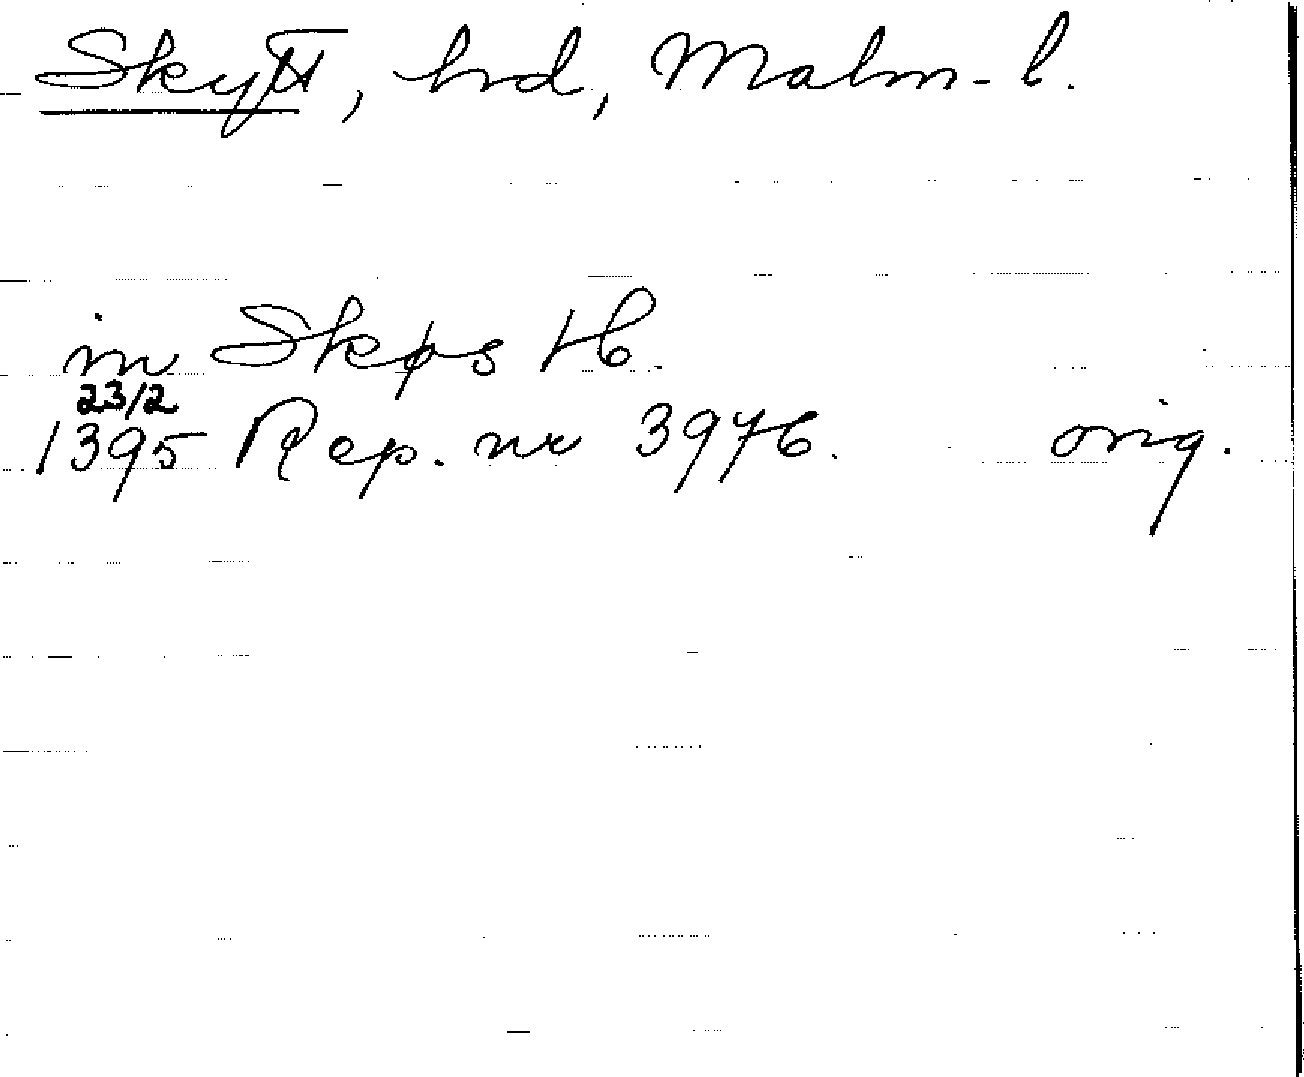 Skytt, hrd, Malm-l.
in Skøs H.
23/2
1395 Rep. nr 3976. orig.